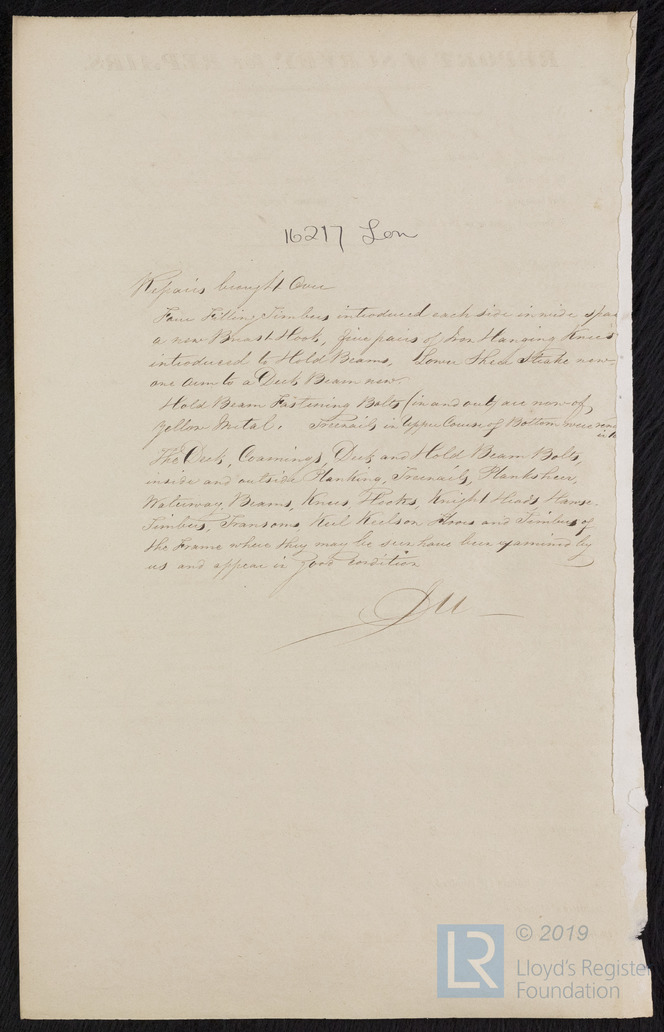 16217 Lon
Repairs brought Over
Four Filling Timbers introduced each side in wide spa
a new Breast Hook, five pairs of Iron Hanging Knees
introduced to Hold Beams, Lower Shed Strake new
one arm to a Deck Beam new.
Hold Beam Fastening Bolts (in and out) are now of
Yellow Metal. Treenails in Upper Course of Bottom were
The Deck, Coamings, Deck and Hold Beam Bolts,
inside and outside Planking, Treenails, Planksheer,
Waterway, Beams, Knees, Hooks, Knight Heads Hawse
Timbers, Transoms Keel Keelson Floors and Timbers of
the Frame where they may be seen have been examined by
us and appear in good condition
© 2019
LR
Lloyd's Register
Foundation